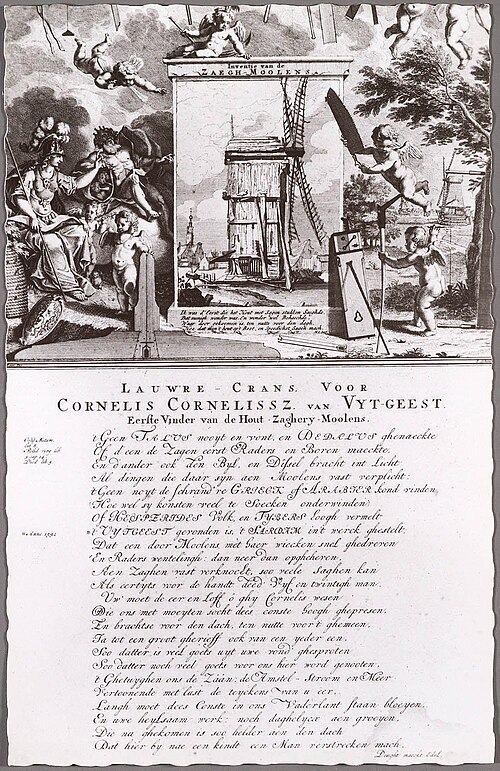 Inventie van de
ZAEGH-MOOLENS.
Ik was d'Eerst die het Hout met Sagen
LAUWRE-CRANS. VOOR
CORNELIS CORNELISSZ. VAN VYT-GEEST.
Eerste Vinder van de Hout-Zaghery-Moolens.
't Geen TALUS nooyt en vont, en DEDALUS ghenaeckte
Of d'een de Zagen eerst Raders en Boren maeckte,
En d'ander ook den Byl, en Dissel bracht int Licht
Al dingen die daar syn aen Moolens vast verplicht:
't Geen noyt de schrand're GRIECK of ARABIER kond vinden,
Hoe wel sy konsten veel te Soecken onderwinden
Of HESPERIDES Volk, en TYBERS hoogh vermelt
't VYTGEEST gevonden is, 't SARDAM in't werck ghestelt;
Dat een door Moolens met haer wiecken snel ghedreven
En Raders wentelingh: dan neer dan opgheheven,
Aen Zaghen vast verknocht, soo veele Saghen kan
Als eertyts voor de handt deed Vyf en twintigh man.
Uw moet de eer en Loff ô ghy Cornelis wesen
Die ons met moeyten socht dees conste hoogh ghepresen.
En brachtse voor den dach, ten nutte voor't ghemeen,
Ja tot een groot gherieff ook van een yeder een.
Soo datter is veel goets uyt uwe vond ghesproten
Soo datter noch veel goets voor ons hier word genooten.
't Ghetuyghen ons de Zaan; de Amstel-Stroom en Meer
Vertoonende met lust de teyckens van u eer.
Langh moet dees Conste in ons Vaderlant staan bloeyen,
En uwe heylsaem werk: noch daghelycx aen groeyen.
Die nu ghekomen is soo helder aen den dach
Dat hier by nae een kindt een Man verstrecken mach.